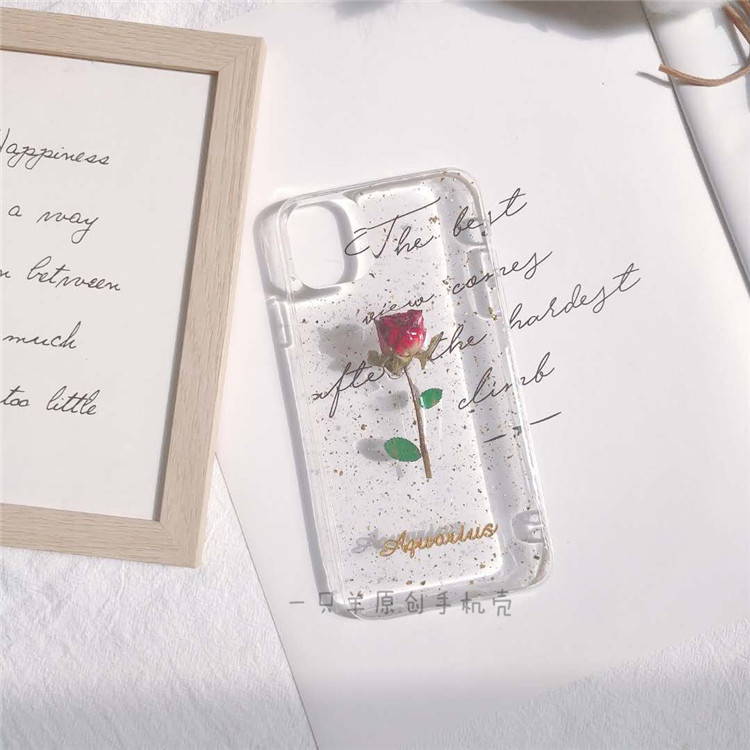 Happiness
a way
between
much
too little
The best
view comes
after the hardest
climb
Aquarius
一只羊原创手机壳